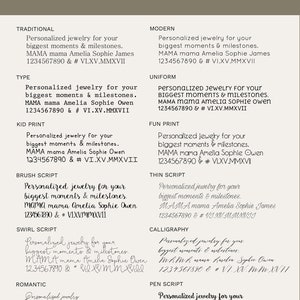 TRADITIONAL
Personalized jewelry for your
biggest moments & milestones.
MAMA mama Amelia Sophie James
1234567890 & # VI.XV.MMXVII
MODERN
Personalized jewelry for your
biggest moments & milestones.
MAMA mama Amelia Sophie James
1234567890 & # VI.XV.MMXVII
TYPE
Personalized jewelry for your
biggest moments & milestones.
MAMA mama Amelia Sophie Owen
1234567890 & # VI.XV.MMXVII
UNIFORM
Personalized jewelry for your
biggest moments & milestones.
MAMA mama Amelia Sophie Owen
1234567890 & # VI.XV.MMXVII
KID PRINT
Personalized jewelry for your
biggest moments & milestones.
MAMA mama Amelia Sophie Owen
1234567890 & # VI.XV.MMXVII
FUN PRINT
Personalized jewelry for your
biggest moments & milestones.
MAMA mama Amelia Sophia Owen
1234567890 & # VI.XV.MMXVII
BRUSH SCRIPT
Personalized jewelry for your
biggest moments & milestones
MAMA mama Amelia Sophie Owen
1234567890 & # VI.XV.MMXVII
THIN SCRIPT
Personalized jewelry for your
biggest moments & milestones.
MAMA mama Amelia Sophie Owen
1234567890 & # VI.XV.MMXVII
SWIRL SCRIPT
Personalized jewelry for your
biggest moments & milestones.
MAMA mama Amelia Sophie Owen
1234567890 & # VI.XV.MMXVII
CALLIGRAPHY
Personalized jewelry for your
biggest moments & milestones.
MAMA mama Amelia Sophie Owen
1234567890 & # VI.XV.MMXVII
ROMANTIC
Personalized jewelry
PEN SCRIPT
Personalized jewelry for your